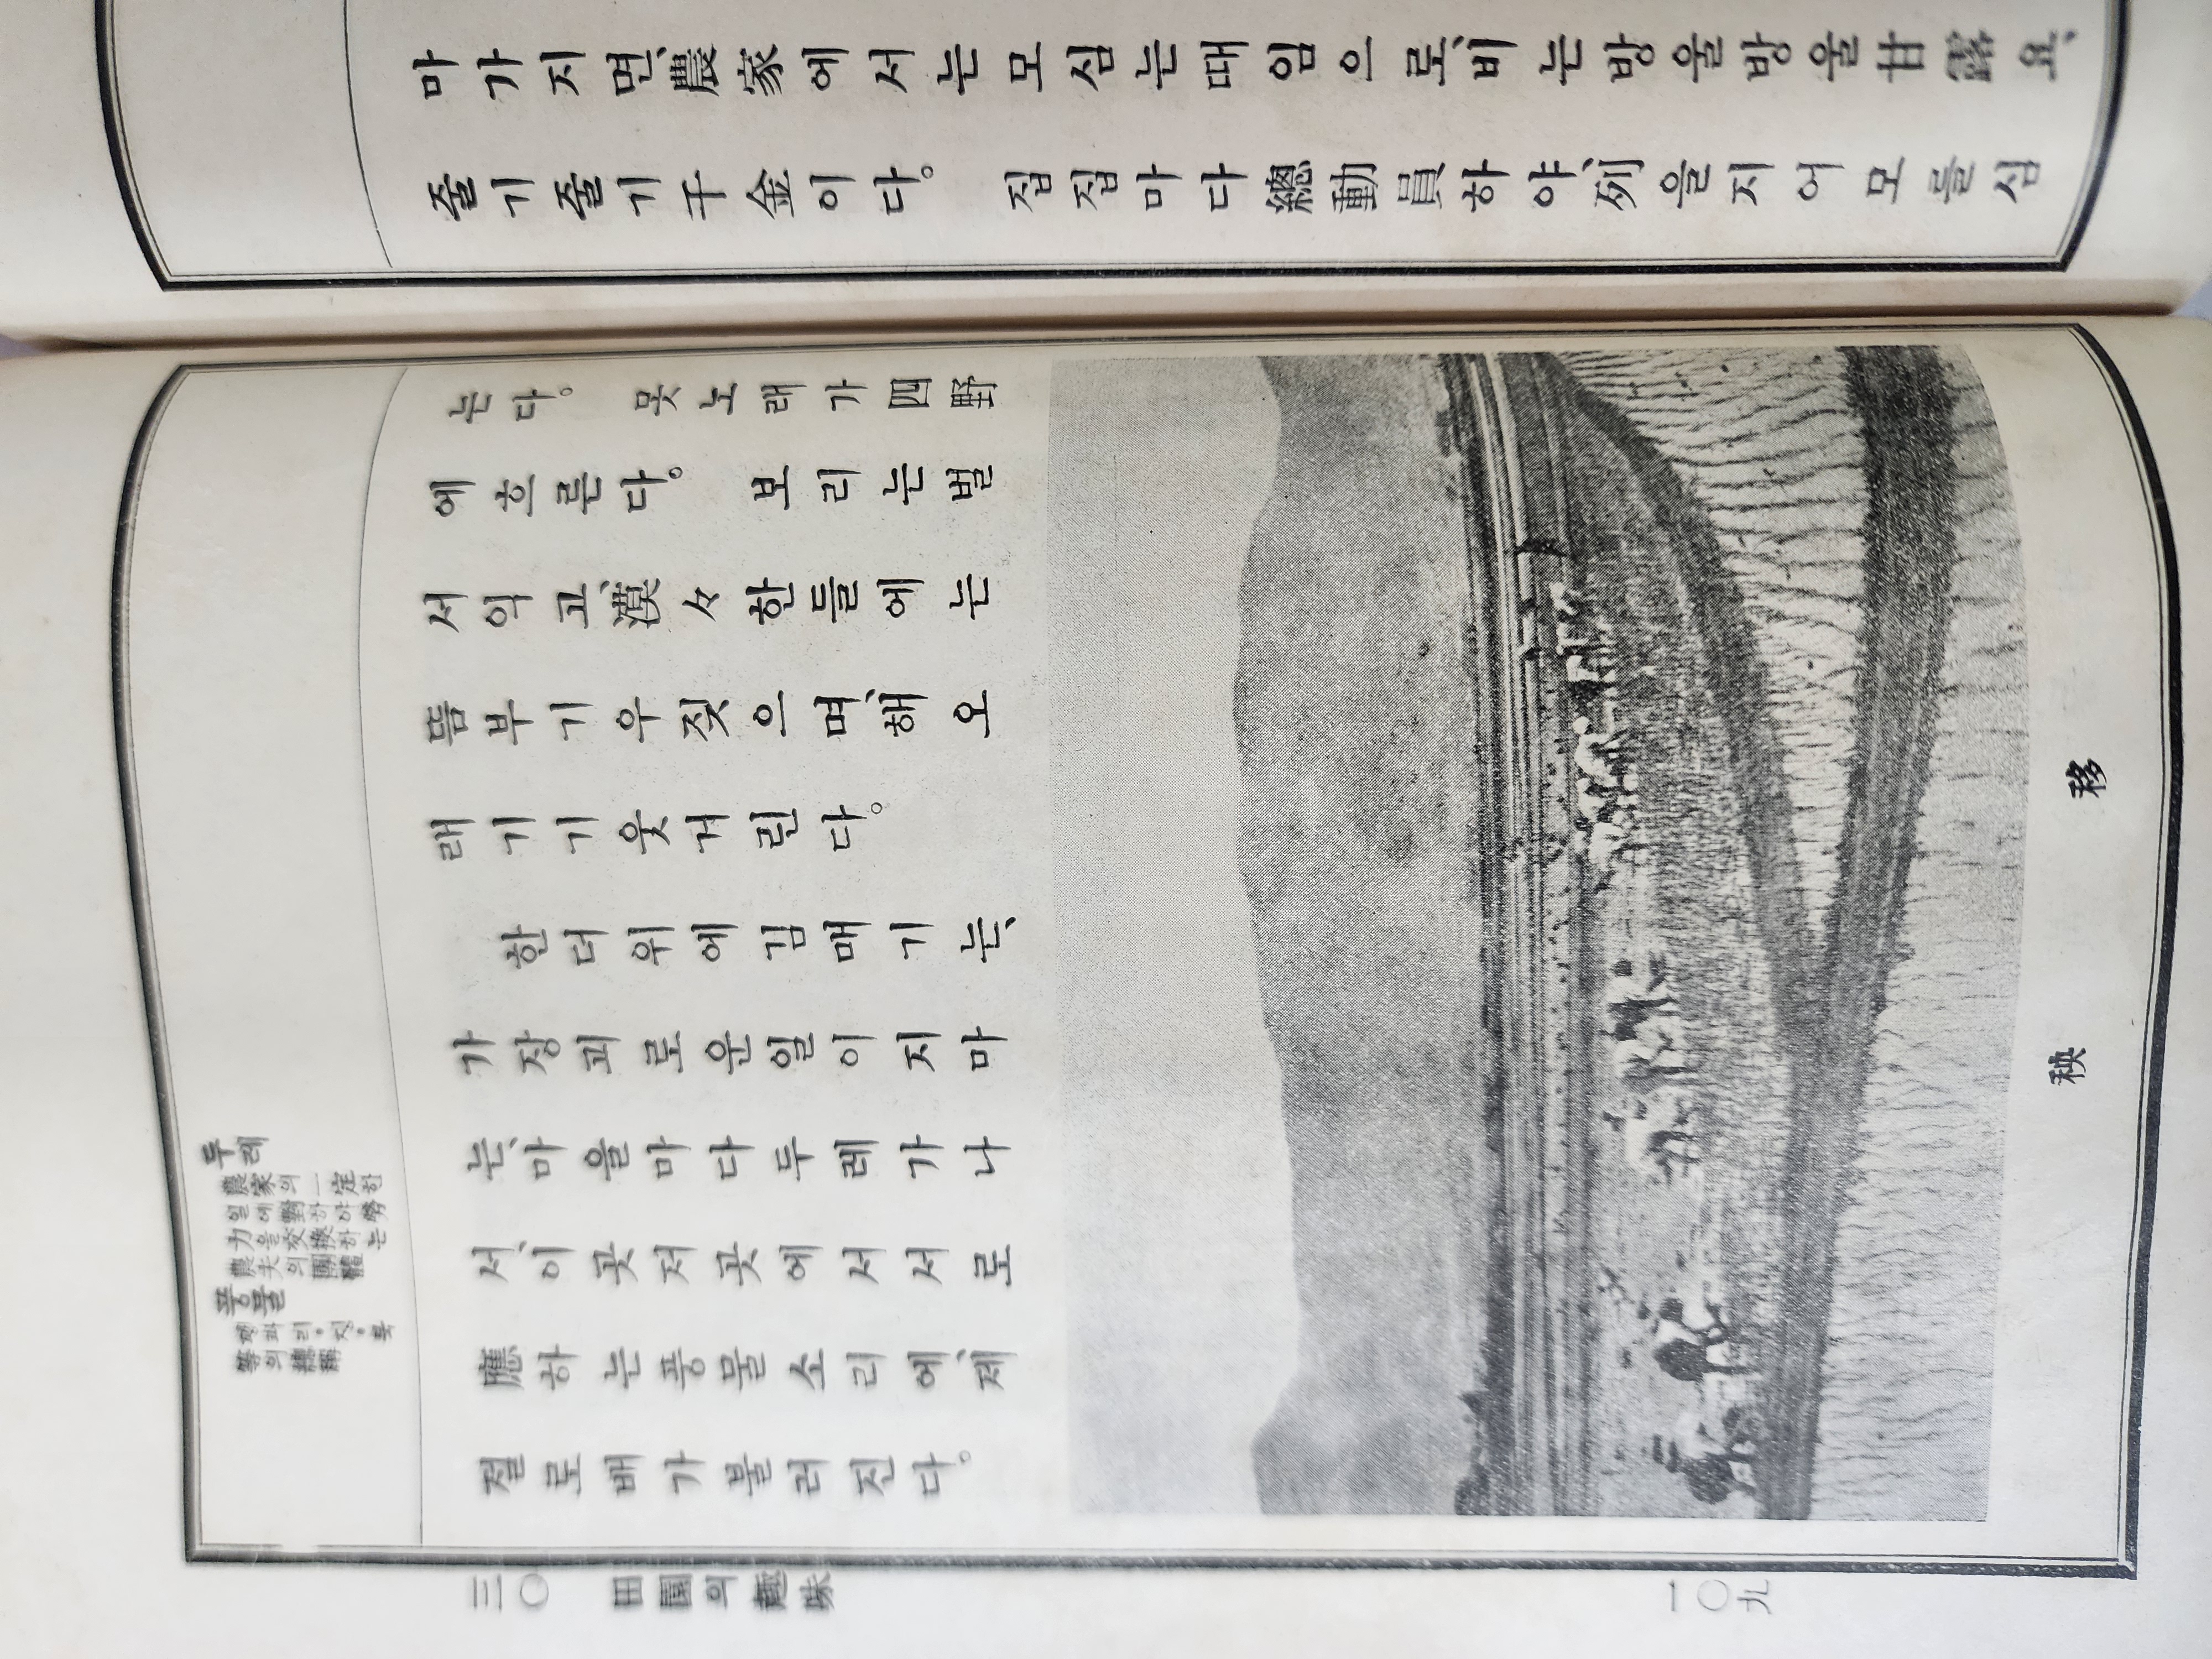 마가지면、農家에서는모심는때임으로、비는방울방울甘露요、
줄기줄기千金이다。 집집마다總動員하야、列을지어모를심
는다。 못노래가四野
에흐른다。 보리는벌
서익고、漠々한들에는
뜸부기우짖으며、해오
래기기웃거린다。
한더위에김매기는、
가장괴로운일이지마
는、마을마다두레가나
서、이곳저곳에서서로
應하는풍물소리에、제
절로배가불러진다。
두레
農家의一定한
일에對하야勞
力을交換하는
農夫의團體
풍물
꽹과리·징·북
等의總稱
移秧
三〇 田園의趣味
一〇九